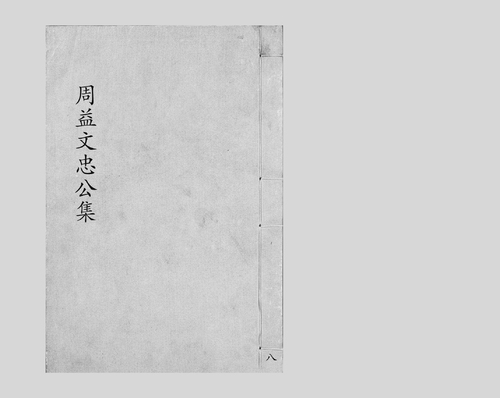 周益文忠公集
八